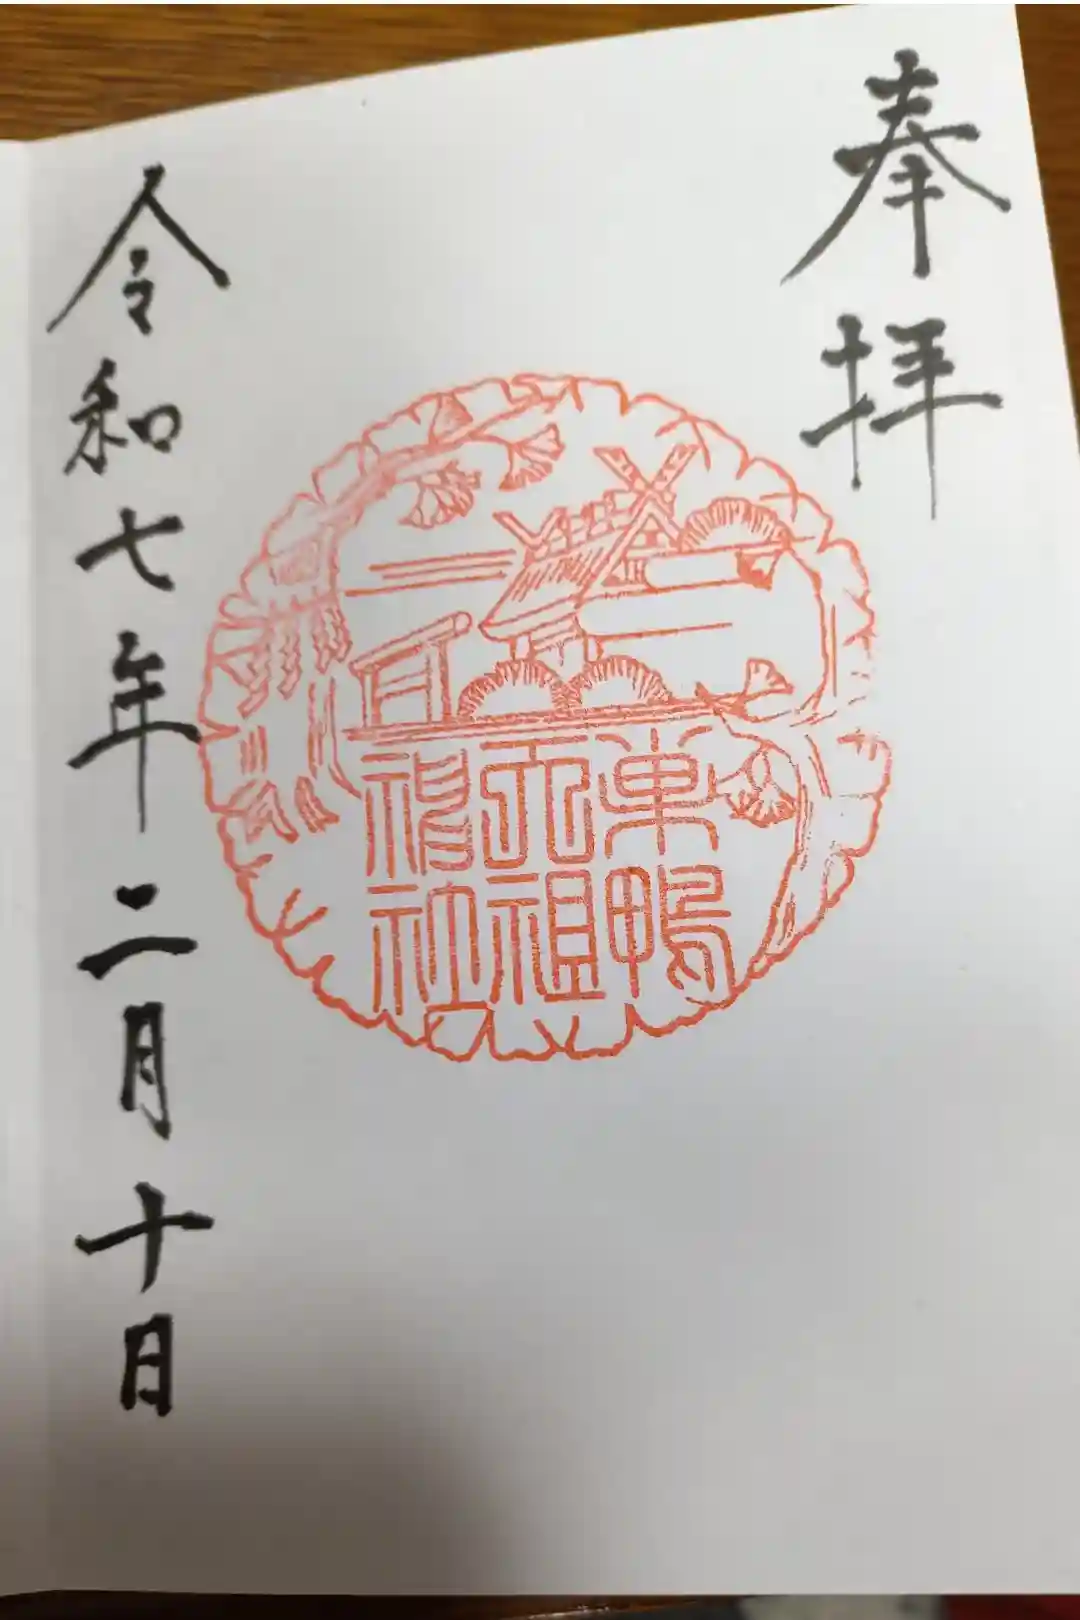 奉拝
巣鴨
天祖
神社
令和七年二月十日